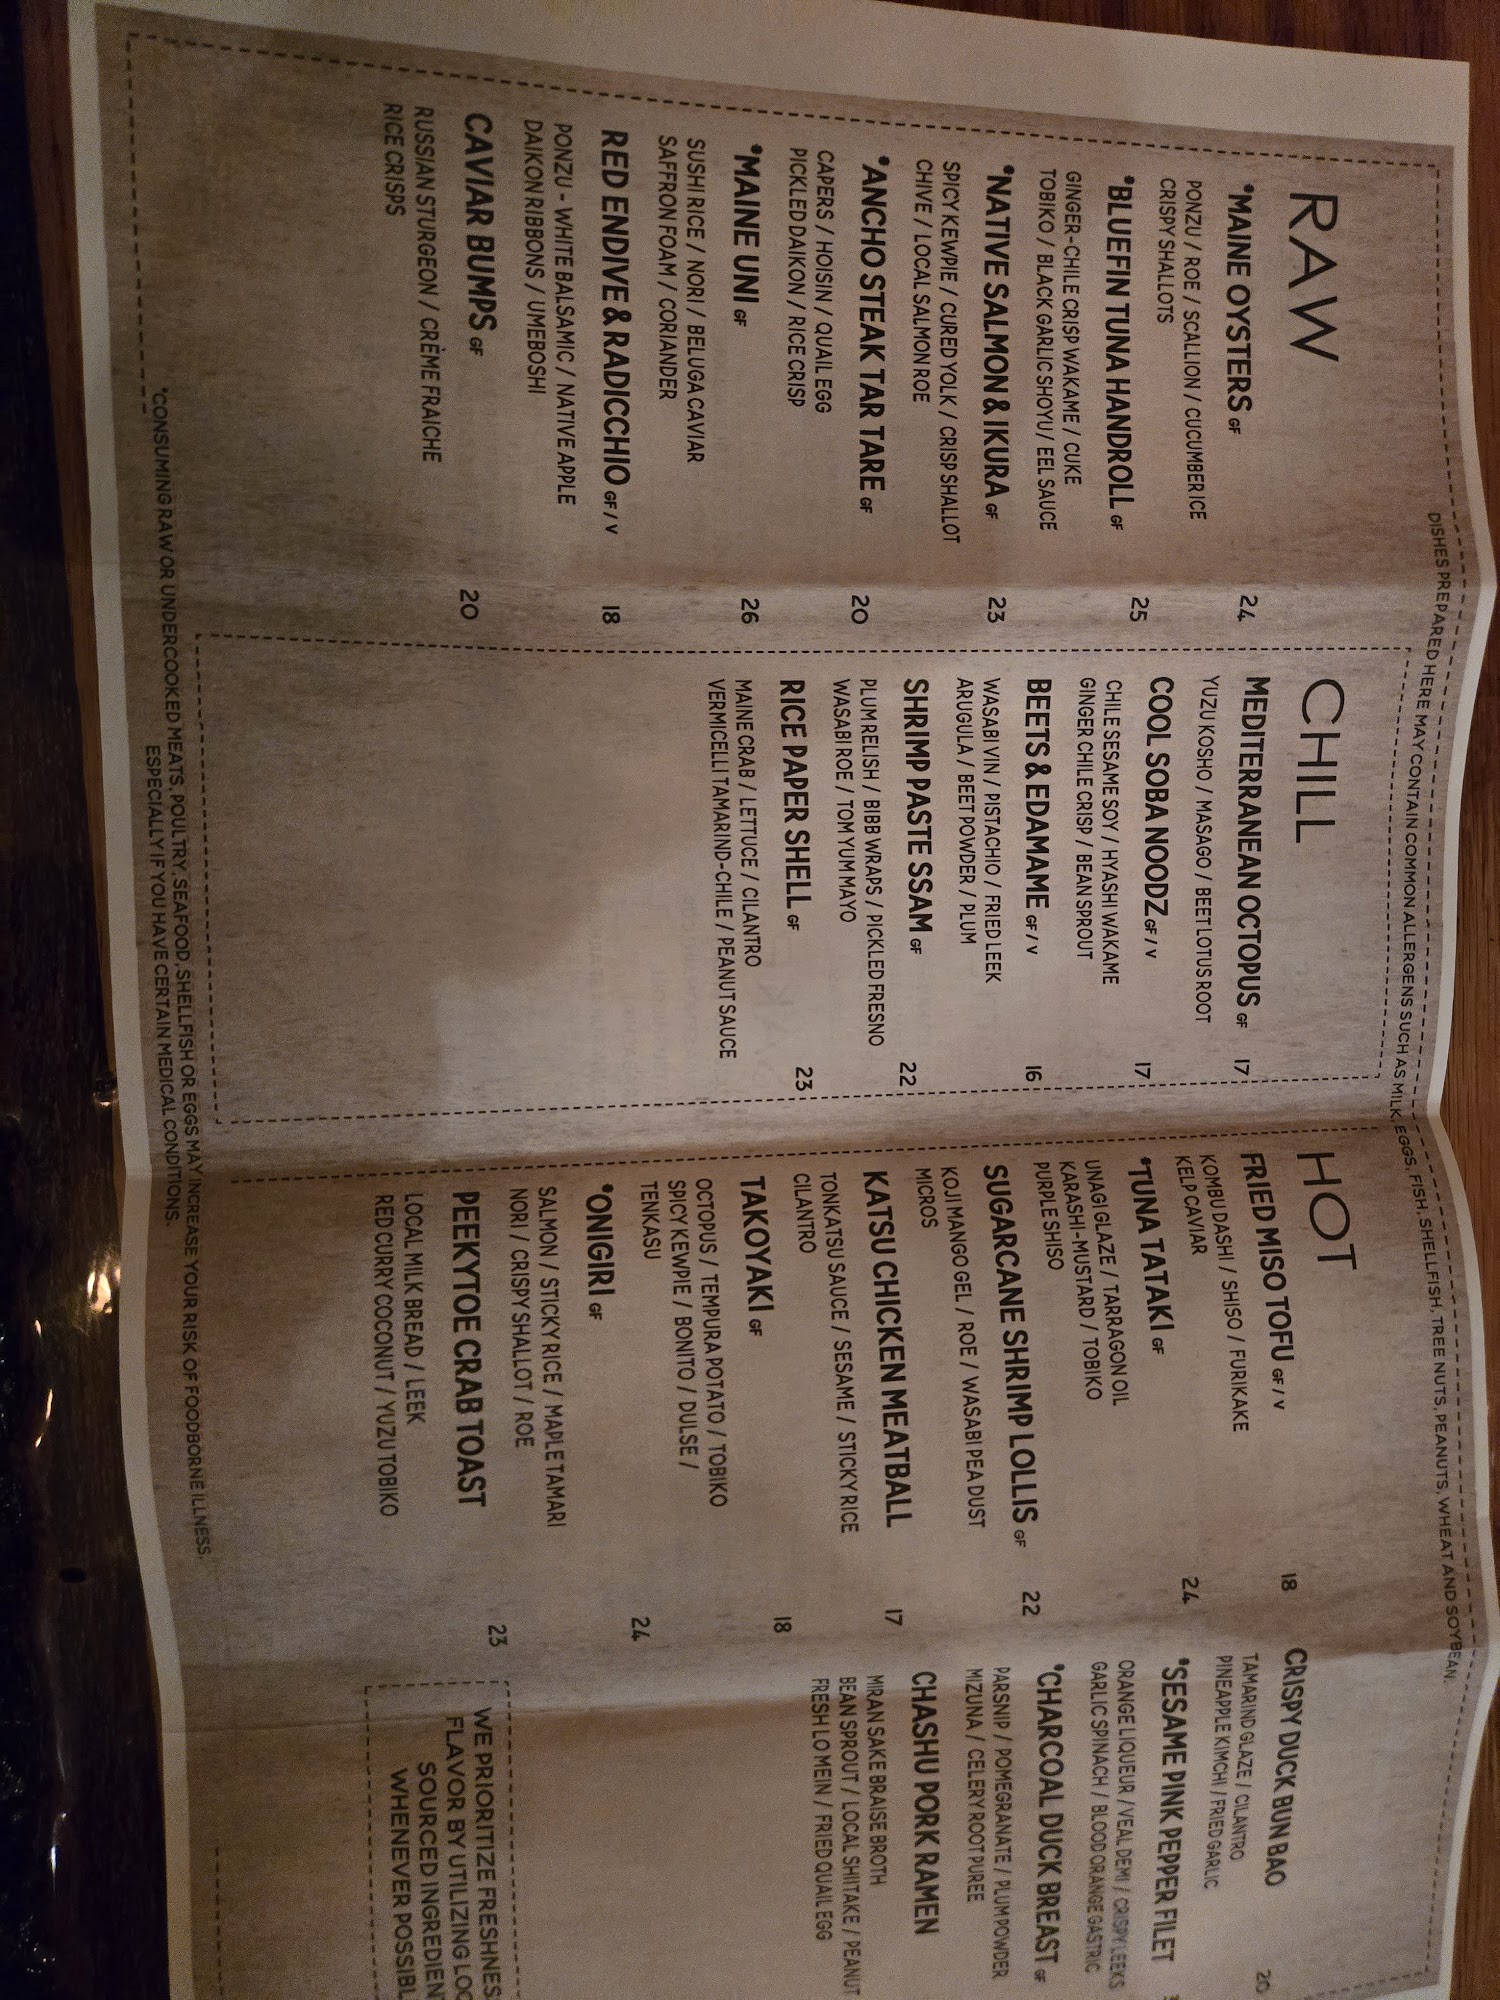 DISHES PREPARED HERE MAY CONTAIN COMMON ALLERGENS SUCH AS MILK, EGGS, FISH, SHELLFISH, TREE NUTS, PEANUTS, WHEAT AND SOYBEAN.
RAW
*MAINE OYSTERS GF 24
PONZU / ROE / SCALLION / CUCUMBER ICE
CRISPY SHALLOTS
*BLUEFIN TUNA HANDROLL GF 25
GINGER-CHILE CRISP WAKAME / CUKE
TOBIKO / BLACK GARLIC SHOYU / EEL SAUCE
*NATIVE SALMON & IKURA GF 23
SPICY KEWPIE / CURED YOLK / CRISP SHALLOT
CHIVE / LOCAL SALMON ROE
*ANCHO STEAK TAR TARE GF 20
CAPERS / HOISIN / QUAIL EGG
PICKLED DAIKON / RICE CRISP
*MAINE UNI GF 26
SUSHI RICE / NORI / BELUGA CAVIAR
SAFFRON FOAM / CORIANDER
RED ENDIVE & RADICCHIO GF / V 18
PONZU - WHITE BALSAMIC / NATIVE APPLE
DAIKON RIBBONS / UMEBOSHI
CAVIAR BUMPS GF 20
RUSSIAN STURGEON / CRÈME FRAICHE
RICE CRISPS
CHILL
MEDITERRANEAN OCTOPUS GF 17
YUZU KOSHO / MASAGO / BEET LOTUS ROOT
COOL SOBA NOODZ GF / V 17
CHILE SESAME SOY / HYASHI WAKAME
GINGER CHILE CRISP / BEAN SPROUT
BEETS & EDAMAME GF / V 16
WASABI VIN / PISTACHIO / FRIED LEEK
ARUGULA / BEET POWDER / PLUM
SHRIMP PASTE SSAM GF 22
PLUM RELISH / BIBB WRAPS / PICKLED FRESNO
WASABI ROE / TOM YUM MAYO
RICE PAPER SHELL GF 23
MAINE CRAB / LETTUCE / CILANTRO
VERMICELLI TAMARIND-CHILE / PEANUT SAUCE
HOT
FRIED MISO TOFU GF / V 18
KOMBU DASHI / SHISO / FURIKAKE
KELP CAVIAR
*TUNA TATAKI GF 24
UNAGI GLAZE / TARRAGON OIL
KARASHI-MUSTARD / TOBIKO
PURPLE SHISO
SUGARCANE SHRIMP LOLLIS GF 22
KOJI MANGO GEL / ROE / WASABI PEA DUST
MICROS
KATSU CHICKEN MEATBALL 17
TONKATSU SAUCE / SESAME / STICKY RICE
CILANTRO
TAKOYAKI GF 18
OCTOPUS / TEMPURA POTATO / TOBIKO
SPICY KEWPIE / BONITO / DULSE /
TENKASU
*ONIGIRI GF 24
SALMON / STICKY RICE / MAPLE TAMARI
NORI / CRISPY SHALLOT / ROE
PEEKYTOE CRAB TOAST 23
LOCAL MILK BREAD / LEEK
RED CURRY COCONUT / YUZU TOBIKO
CRISPY DUCK BUN BAO 20
TAMARIND GLAZE / CILANTRO
PINEAPPLE KIMCHI / FRIED GARLIC
*SESAME PINK PEPPER FILET
ORANGE LIQUEUR / VEAL DEMI / CRISPY LEEKS
GARLIC SPINACH / BLOOD ORANGE GASTRIC
*CHARCOAL DUCK BREAST GF
PARSNIP / POMEGRANATE / PLUM POWDER
MIZUNA / CELERY ROOT PUREE
CHASHU PORK RAMEN
MIRAN SAKE BRAISE BROTH
BEAN SPROUT / LOCAL SHIITAKE / PEANUT
FRESH LO MEIN / FRIED QUAIL EGG
WE PRIORITIZE FRESHNES
FLAVOR BY UTILIZING LOC
SOURCED INGREDIENT
WHENEVER POSSIBL
*CONSUMING RAW OR UNDERCOOKED MEATS, POULTRY, SEAFOOD, SHELLFISH OR EGGS MAY INCREASE YOUR RISK OF FOODBORNE ILLNESS,
ESPECIALLY IF YOU HAVE CERTAIN MEDICAL CONDITIONS.